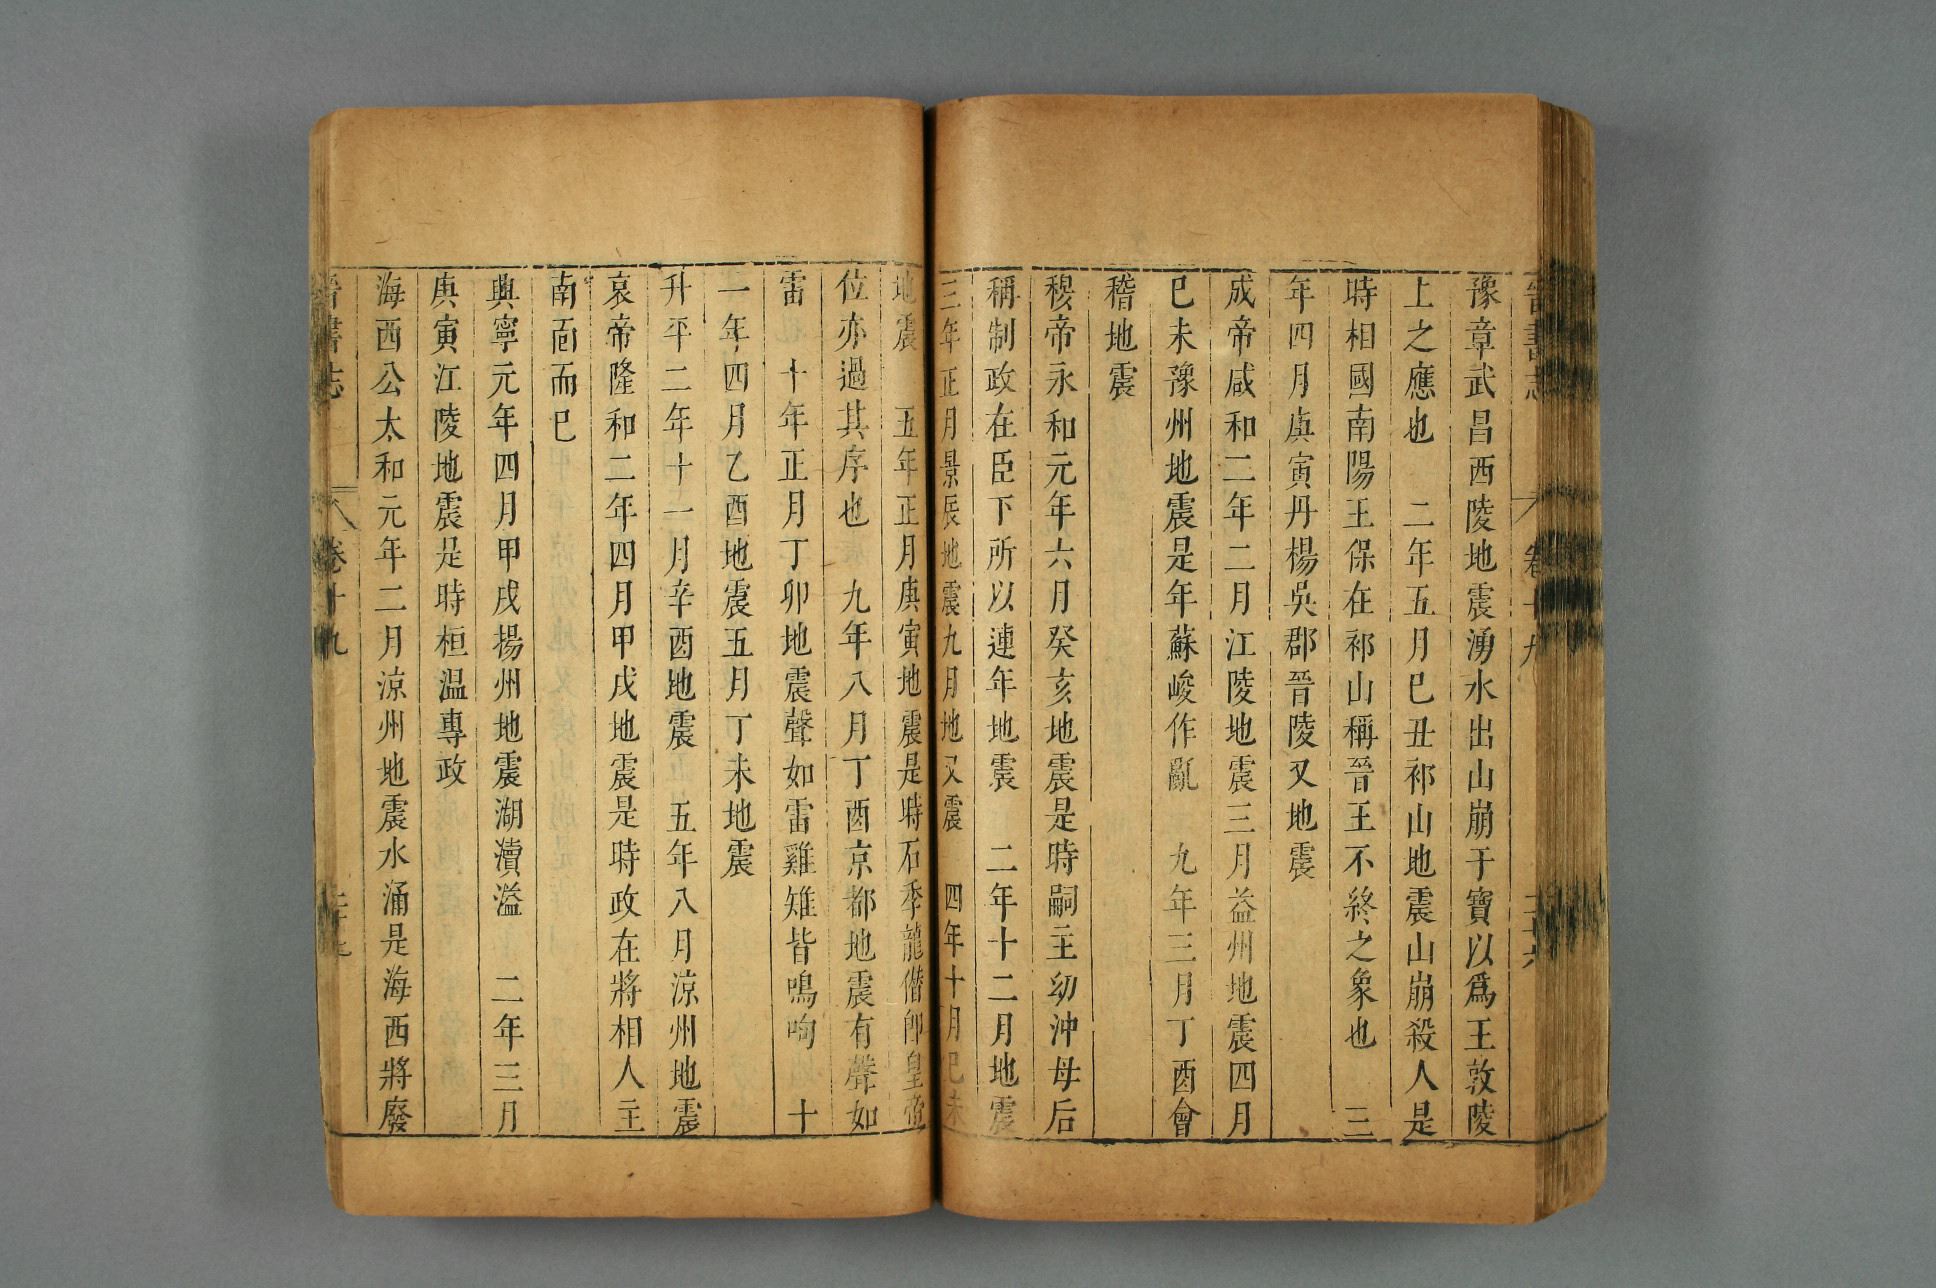 晉書志 卷十九 二十六
豫章武昌西陵地震湧水出山崩干寶以爲王敦陵
上之應也 二年五月已丑祁山地震山崩殺人是
時相國南陽王保在祁山稱晉王不終之象也 三
年四月庚寅丹楊吳郡晉陵又地震
成帝咸和二年二月江陵地震三月益州地震四月
已未豫州地震是年蘇峻作亂 九年三月丁酉會
稽地震
穆帝永和元年六月癸亥地震是時嗣主幼沖母后
稱制政在臣下所以連年地震 二年十二月地震
三年正月景辰地震九月地又震 四年十月已未
地震 五年正月庚寅地震是時石季龍僭卽皇帝
位亦過其序也 九年八月丁酉京都地震有聲如
雷 十年正月丁卯地震聲如雷雞雉皆鳴呴 十
一年四月乙酉地震五月丁未地震
升平二年十一月辛酉地震 五年八月涼州地震
哀帝隆和二年四月甲戌地震是時政在將相人主
南靣而已
興寧元年四月甲戌揚州地震湖瀆溢 二年三月
庚寅江陵地震是時桓温專政
海西公太和元年二月涼州地震水涌是海西將廢
晉書志 卷十九